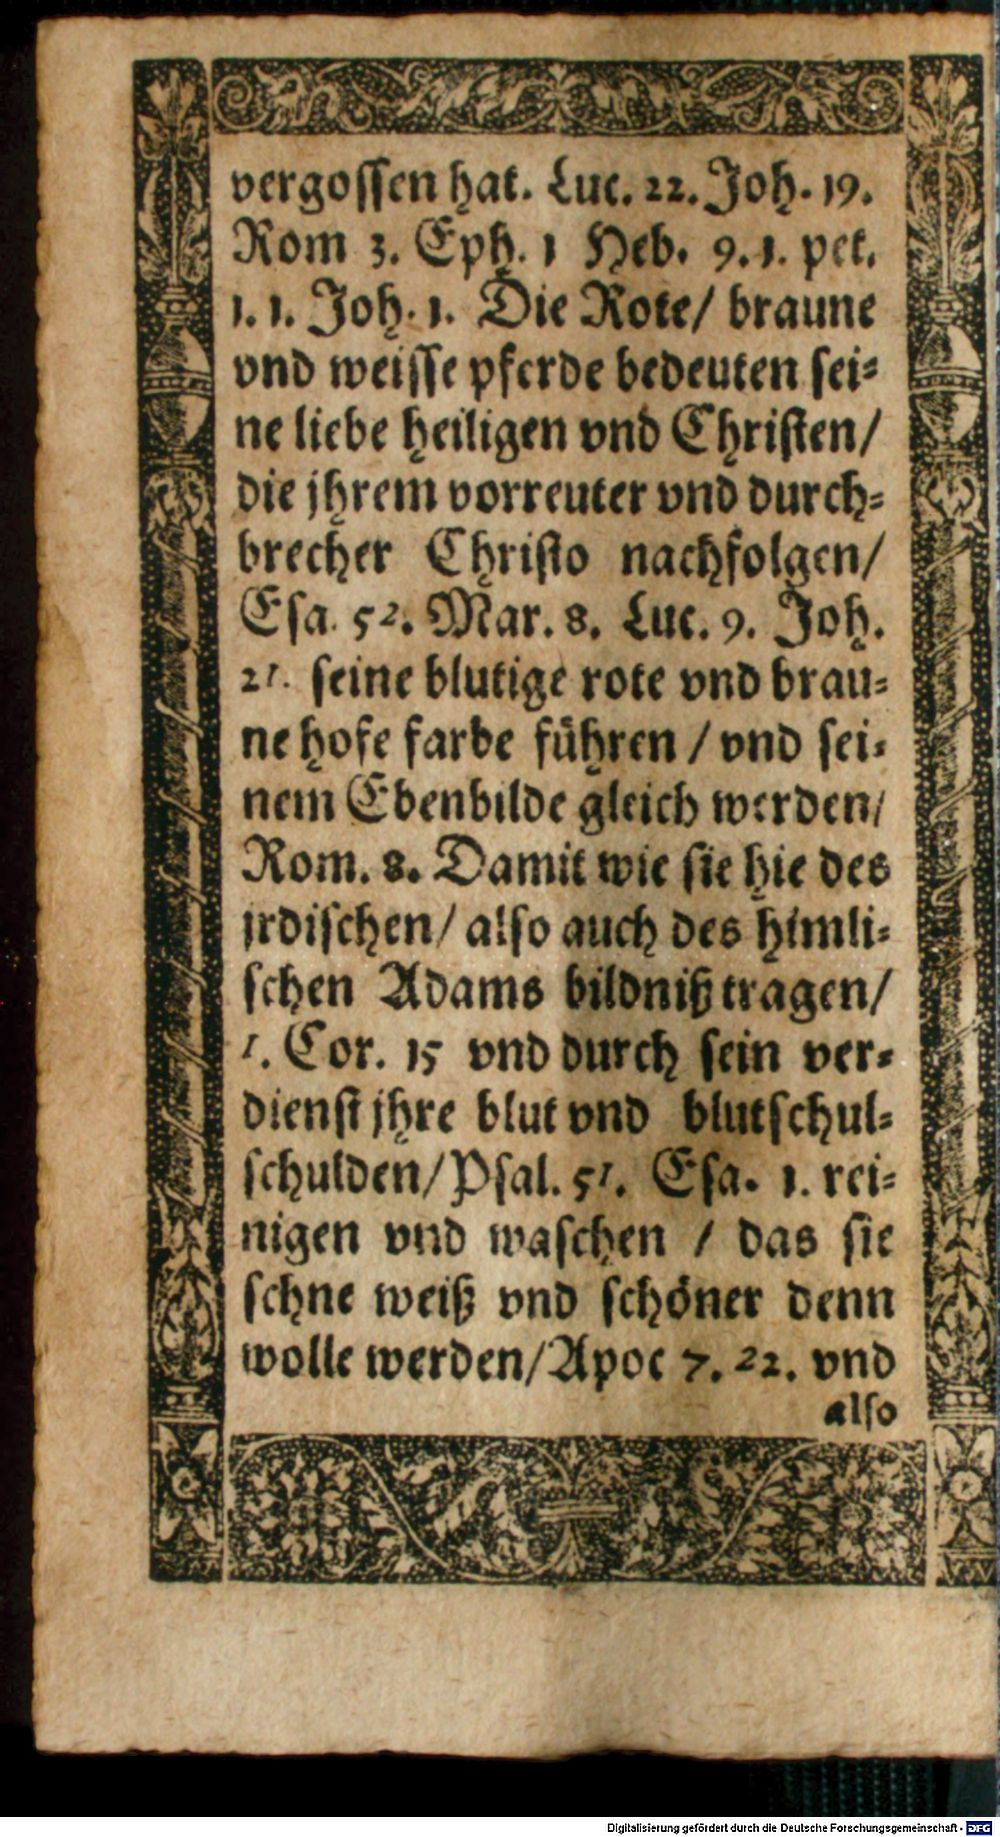 vergossen hat. Luc. 22. Joh. 19.
Rom 3. Eph. 1 Heb. 9. 1. pet.
1. 1. Joh. 1. Die Rote/ braune
vnd weisse pferde bedeuten sei⸗
ne liebe heiligen vnd Christen/
die jhrem vorreuter vnd durch⸗
brecher Christo nachfolgen/
Esa. 52. Mar. 8. Luc. 9. Joh.
21. seine blutige rote vnd brau⸗
ne hofe farbe führen / vnd sei⸗
nem Ebenbilde gleich werden/
Rom. 8. Damit wie sie hie des
jrdischen/ also auch des himli⸗
schen Adams bildniß tragen/
1. Cor. 15 vnd durch sein ver⸗
dienst jhre blut vnd blutschul⸗
schulden/ Psal. 51. Esa. 1. rei⸗
nigen vnd waschen / das sie
schne weiß vnd schöner denn
wolle werden/ Apoc 7. 22. vnd
also
Digitalisierung gefördert durch die Deutsche Forschungsgemeinschaft - DFG